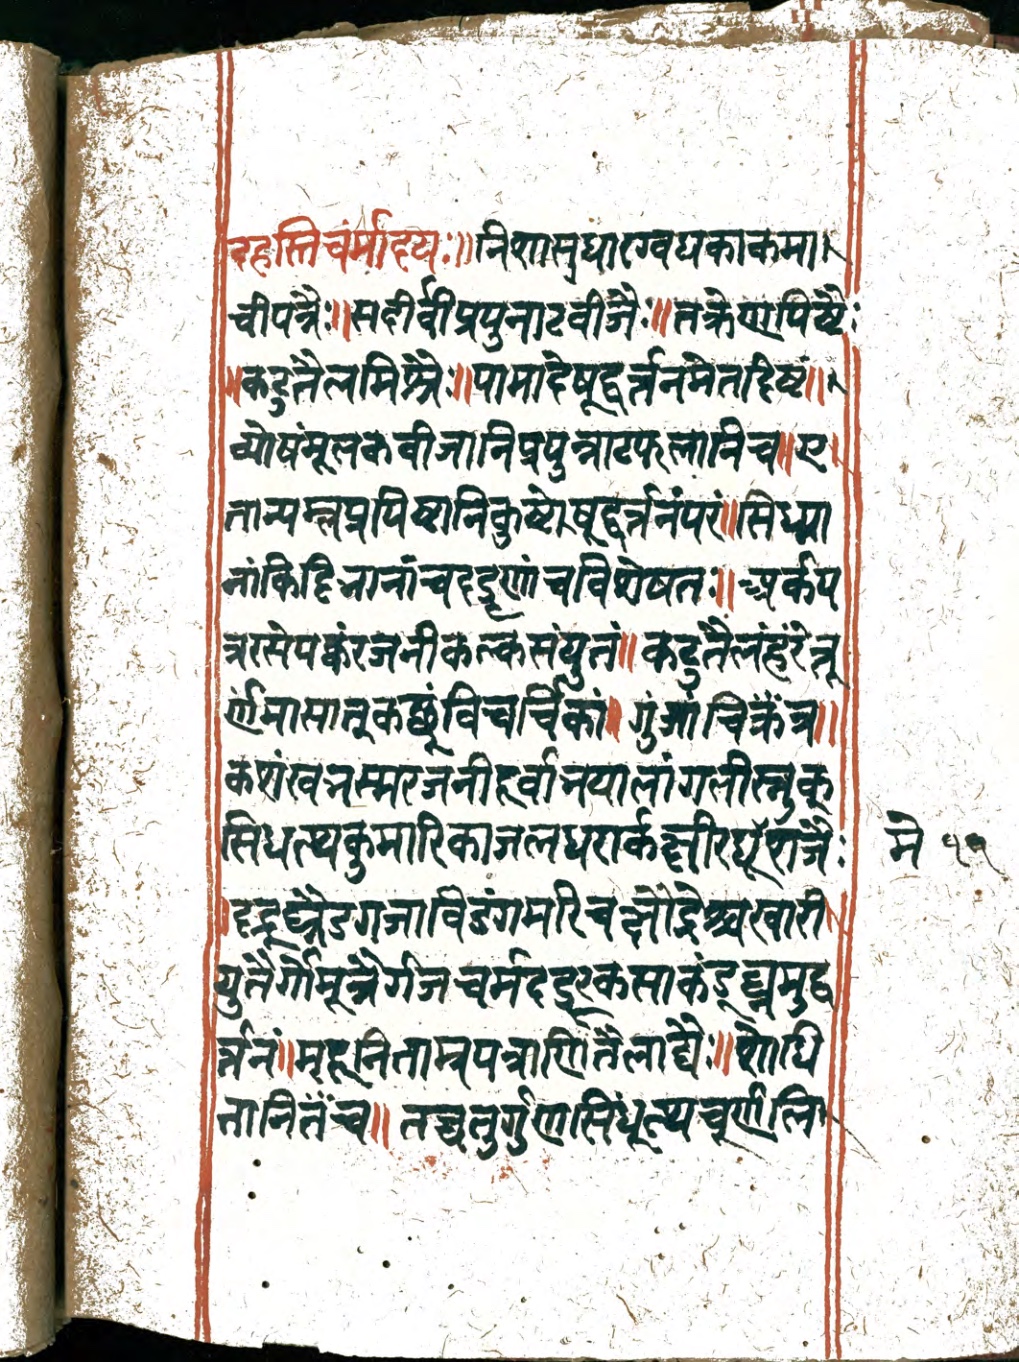 दहस्तिचंर्मादयः॥निशासुधारग्वधकाकमा।
चीपत्रैः॥सदीर्वीप्रपुनाटवीजैः॥तक्रेणपिष्टैः
॥कटुतैलमिश्रैः॥पामादेषूद्वर्त्तनमेतदिष्टं॥
व्योषंमूलकवीजानिप्रपुन्नाटफलानिच॥ए।
तान्यम्लप्रपिष्टानिकुष्टोषूद्वर्त्तनंपरं॥सिध्मा
नांकिटिनानांचदद्रूणांचविशेषतः॥अर्कप
त्ररसेपक्वंरजनीकल्कसंयुतं॥कटुतैलंहरेत्तू
र्णंमासात्कछूंविचर्चिकां॥गुंजांचित्रकंत्र॥
कशंखनस्मरजनीदूर्वानयालांगलीस्नुक्
सिधत्थकुमारिकाजलधरार्कक्षीरधूशजैः
मे ११
॥दद्रूघ्नैडगजाविडंगमरिचक्षौद्रेश्चखारी
युतैर्गोमूत्रैर्गजचर्मदद्रूरकसाकंड्घ्नमुद्व
र्त्तनं॥मृदूनिताम्रपत्राणितैलाद्यैः॥शोधि
तानितैंच॥तच्चतुर्गुणसिंधूत्थचूर्णलि